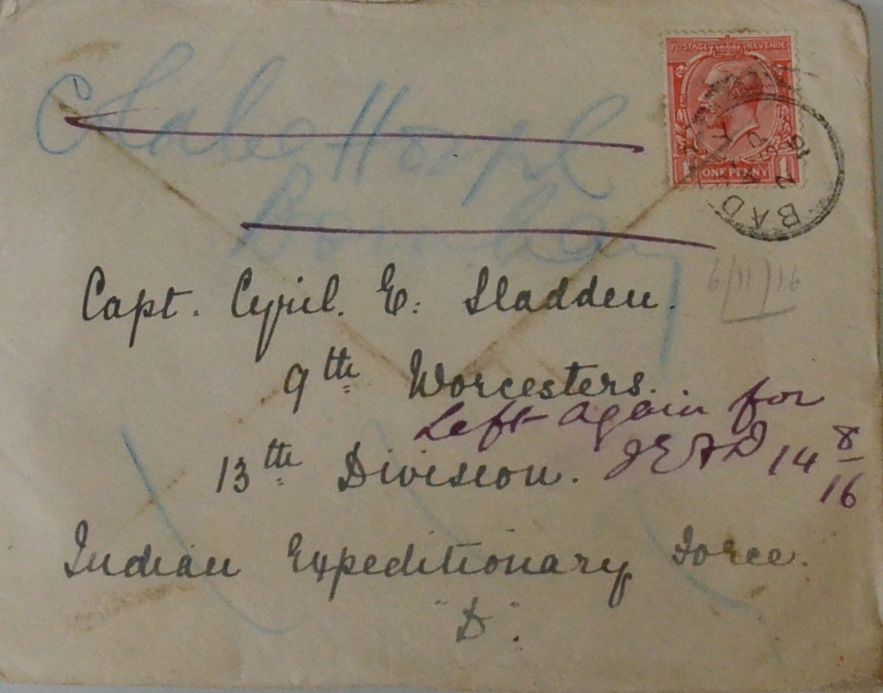 POSTAGE REVENUE
1 ONE PENNY 1
BAD
Colaba Hospl
Bombay
6/11/16
Capt. Cyril. E. Sladden.
9th Worcesters.
Left again for
IEFD 14 8/16
13th Division.
Indian Expeditionary Force.
"D".